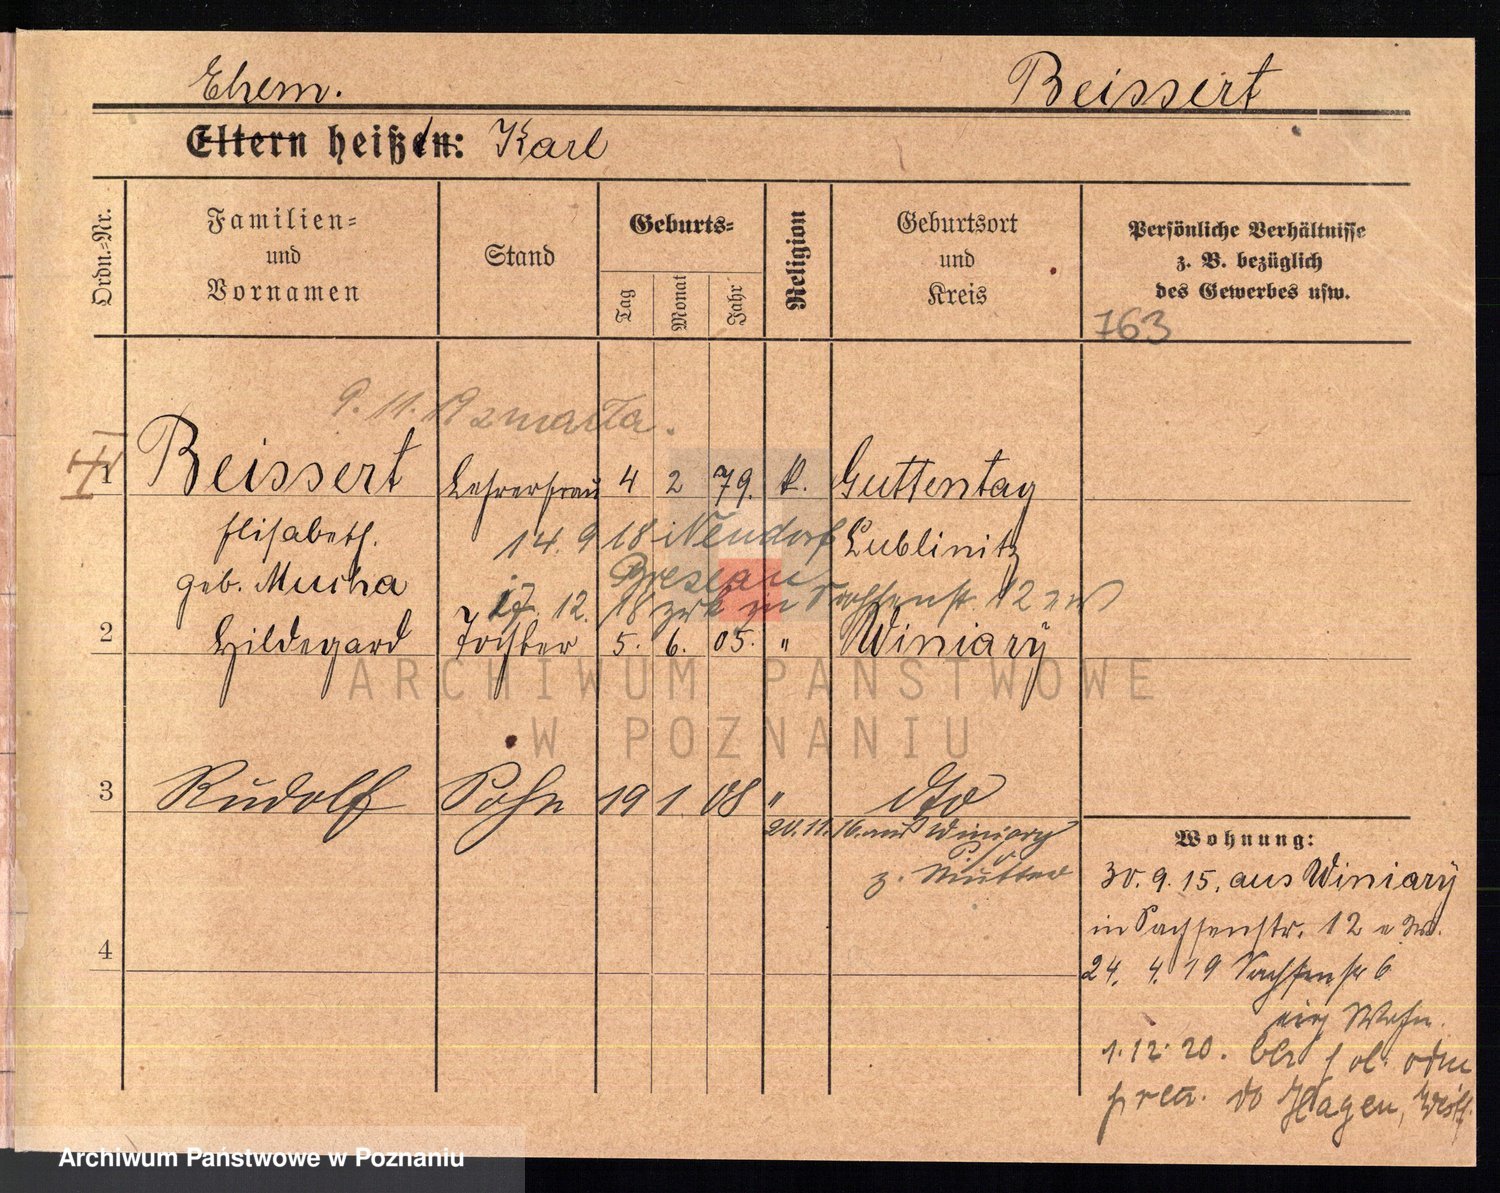 Ehem. Beissert
Eltern heißen: Karl
Ordn.=Nr.
Familien=
und
Vornamen
Stand
Geburts=
Tag
Monat
Jahr
Religion
Geburtsort
und
Kreis
Persönliche Verhältnisse
z. B. bezüglich
des Gewerbes usw.
763
9. 11. 19 zmarła.
1 Beissert Lehrerfrau 4 2 79. k. Guttentag
Elisabeth. 14. 9 18 Neudorf Lublinitz
Breslau
geb. Mucha 12. 18 zrk in Sachsenstr. 12
2 Hildegard Tochter 5. 6. 05. " Winiary
3 Rudolf Sohn 19 1. 08 " dto
20. 11. 16. aus Winiary
z. Mutter
4
Wohnung:
30. 9. 15. aus Winiary
in Sachsenstr. 12
24. 4. 19 Sachsenstr 6
eig Wohn.
1. 12. 20.
do Hagen, Westf.
ARCHIWUM PAŃSTWOWE
W POZNANIU
Archiwum Państwowe w Poznaniu